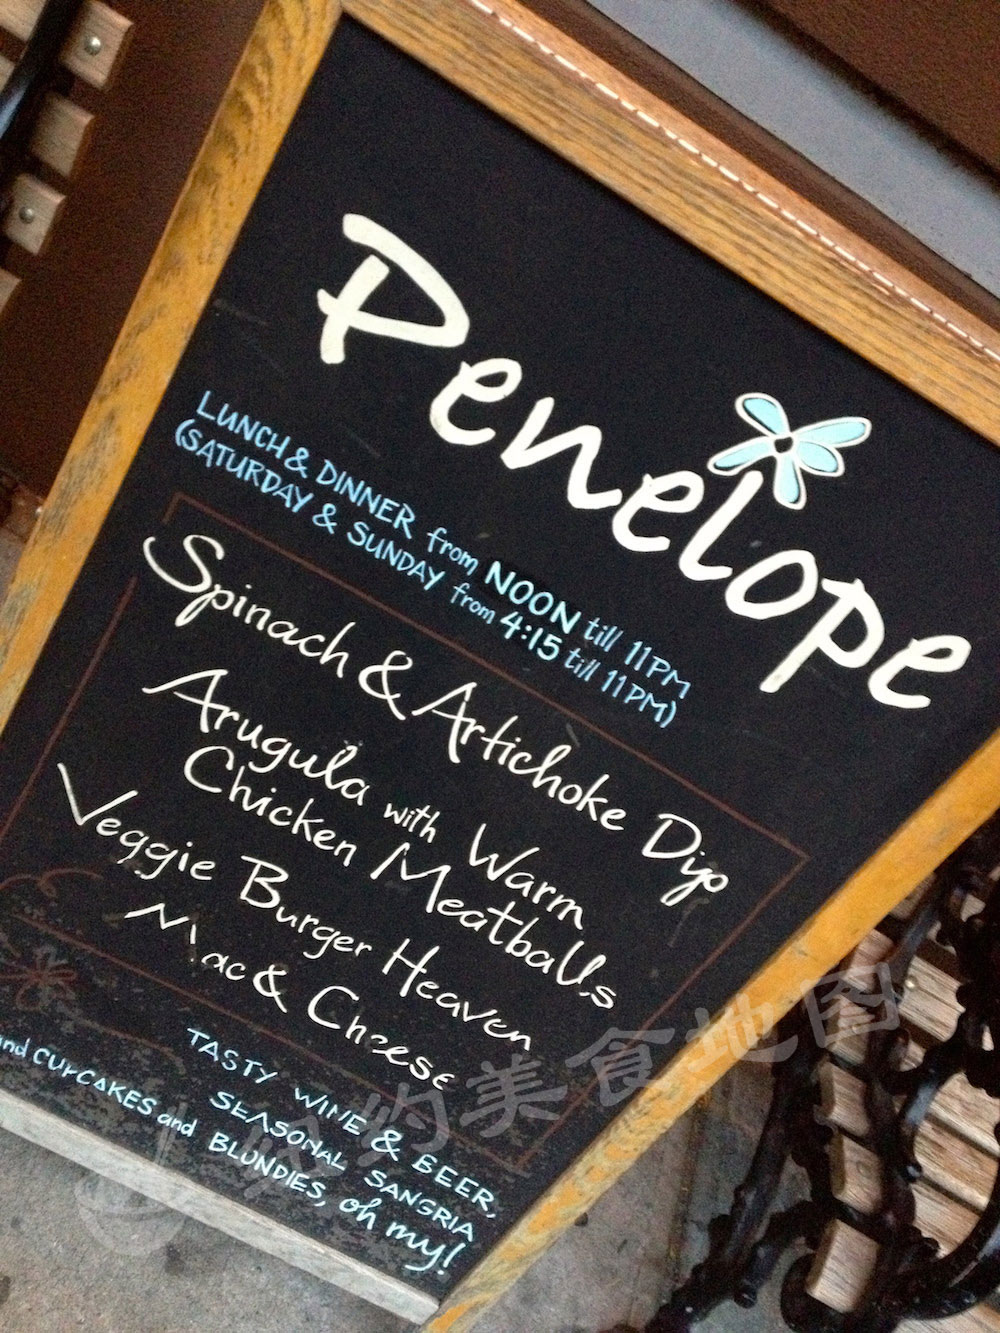 Penelope
LUNCH & DINNER from NOON till 11PM
(SATURDAY & SUNDAY from 4:15 till 11PM)
Spinach & Artichoke Dip
Arugula with Warm
Chicken Meatballs
Veggie Burger Heaven
Mac & Cheese
TASTY WINE & BEER,
SEASONAL SANGRIA
and CUPCAKES and BLONDIES, oh my!
美食地图